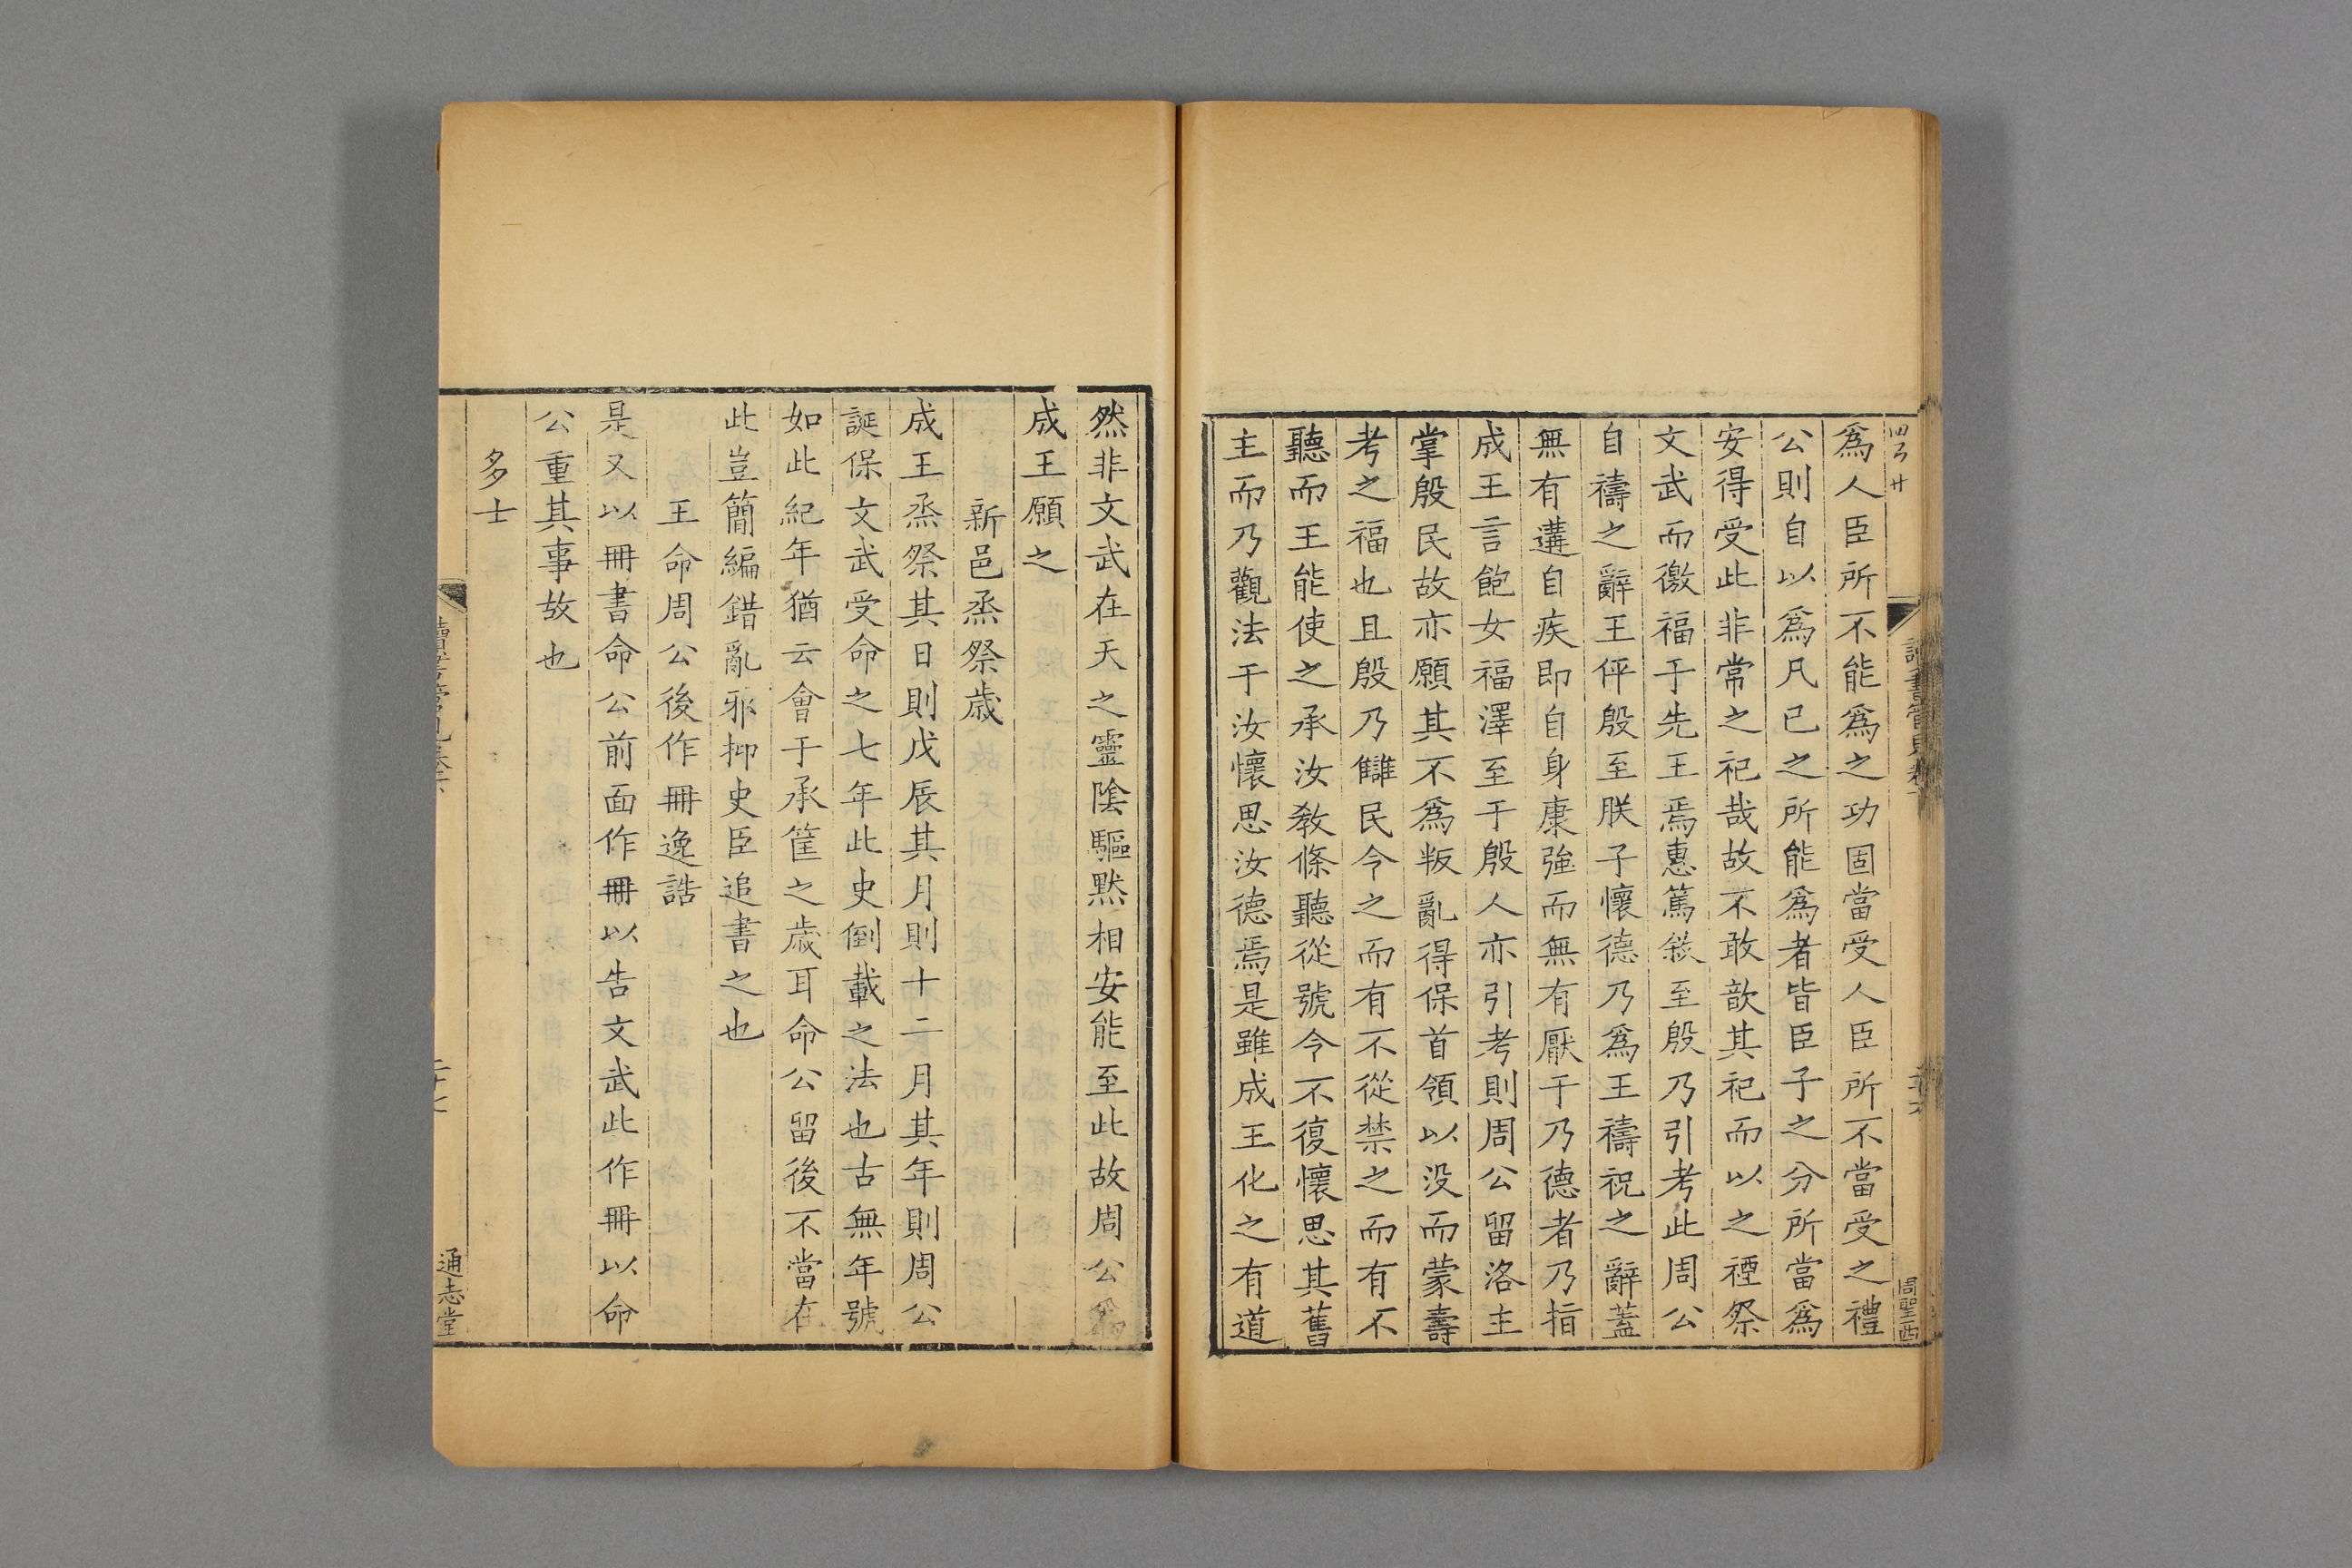 爲人臣所不能爲之功固當受人臣所不當受之禮
公則自以爲凡已之所能爲者皆臣子之分所當爲
安得受此非常之祀哉故不敢歆其祀而以之禋祭
文武而徼福于先王焉惠篤敘至殷乃引考此周公
自禱之辭王伻殷至朕子懷德乃爲王禱祝之辭蓋
無有遘自疾即自身康強而無有厭于乃德者乃指
成王言飽女福澤至于殷人亦引考則周公留洛主
掌殷民故亦願其不爲叛亂得保首領以没而蒙壽
考之福也且殷乃讎民今之而有不從禁之而有不
聽而王能使之承汝敎條聽從號令不復懷思其舊
主而乃觀法于汝懷思汝德焉是雖成王化之有道
然非文武在天之靈陰驅黙相安能至此故周公爲
成王願之
新邑烝祭歲
成王烝祭其日則戊辰其月則十二月其年則周公
誕保文武受命之七年此史倒載之法也古無年號
如此紀年猶云會于承筐之歲耳命公留後不當在
此豈簡編錯亂邪抑史臣追書之也
王命周公後作冊逸誥
是又以冊書命公前面作冊以告文武此作冊以命
公重其事故也
多士
通志堂